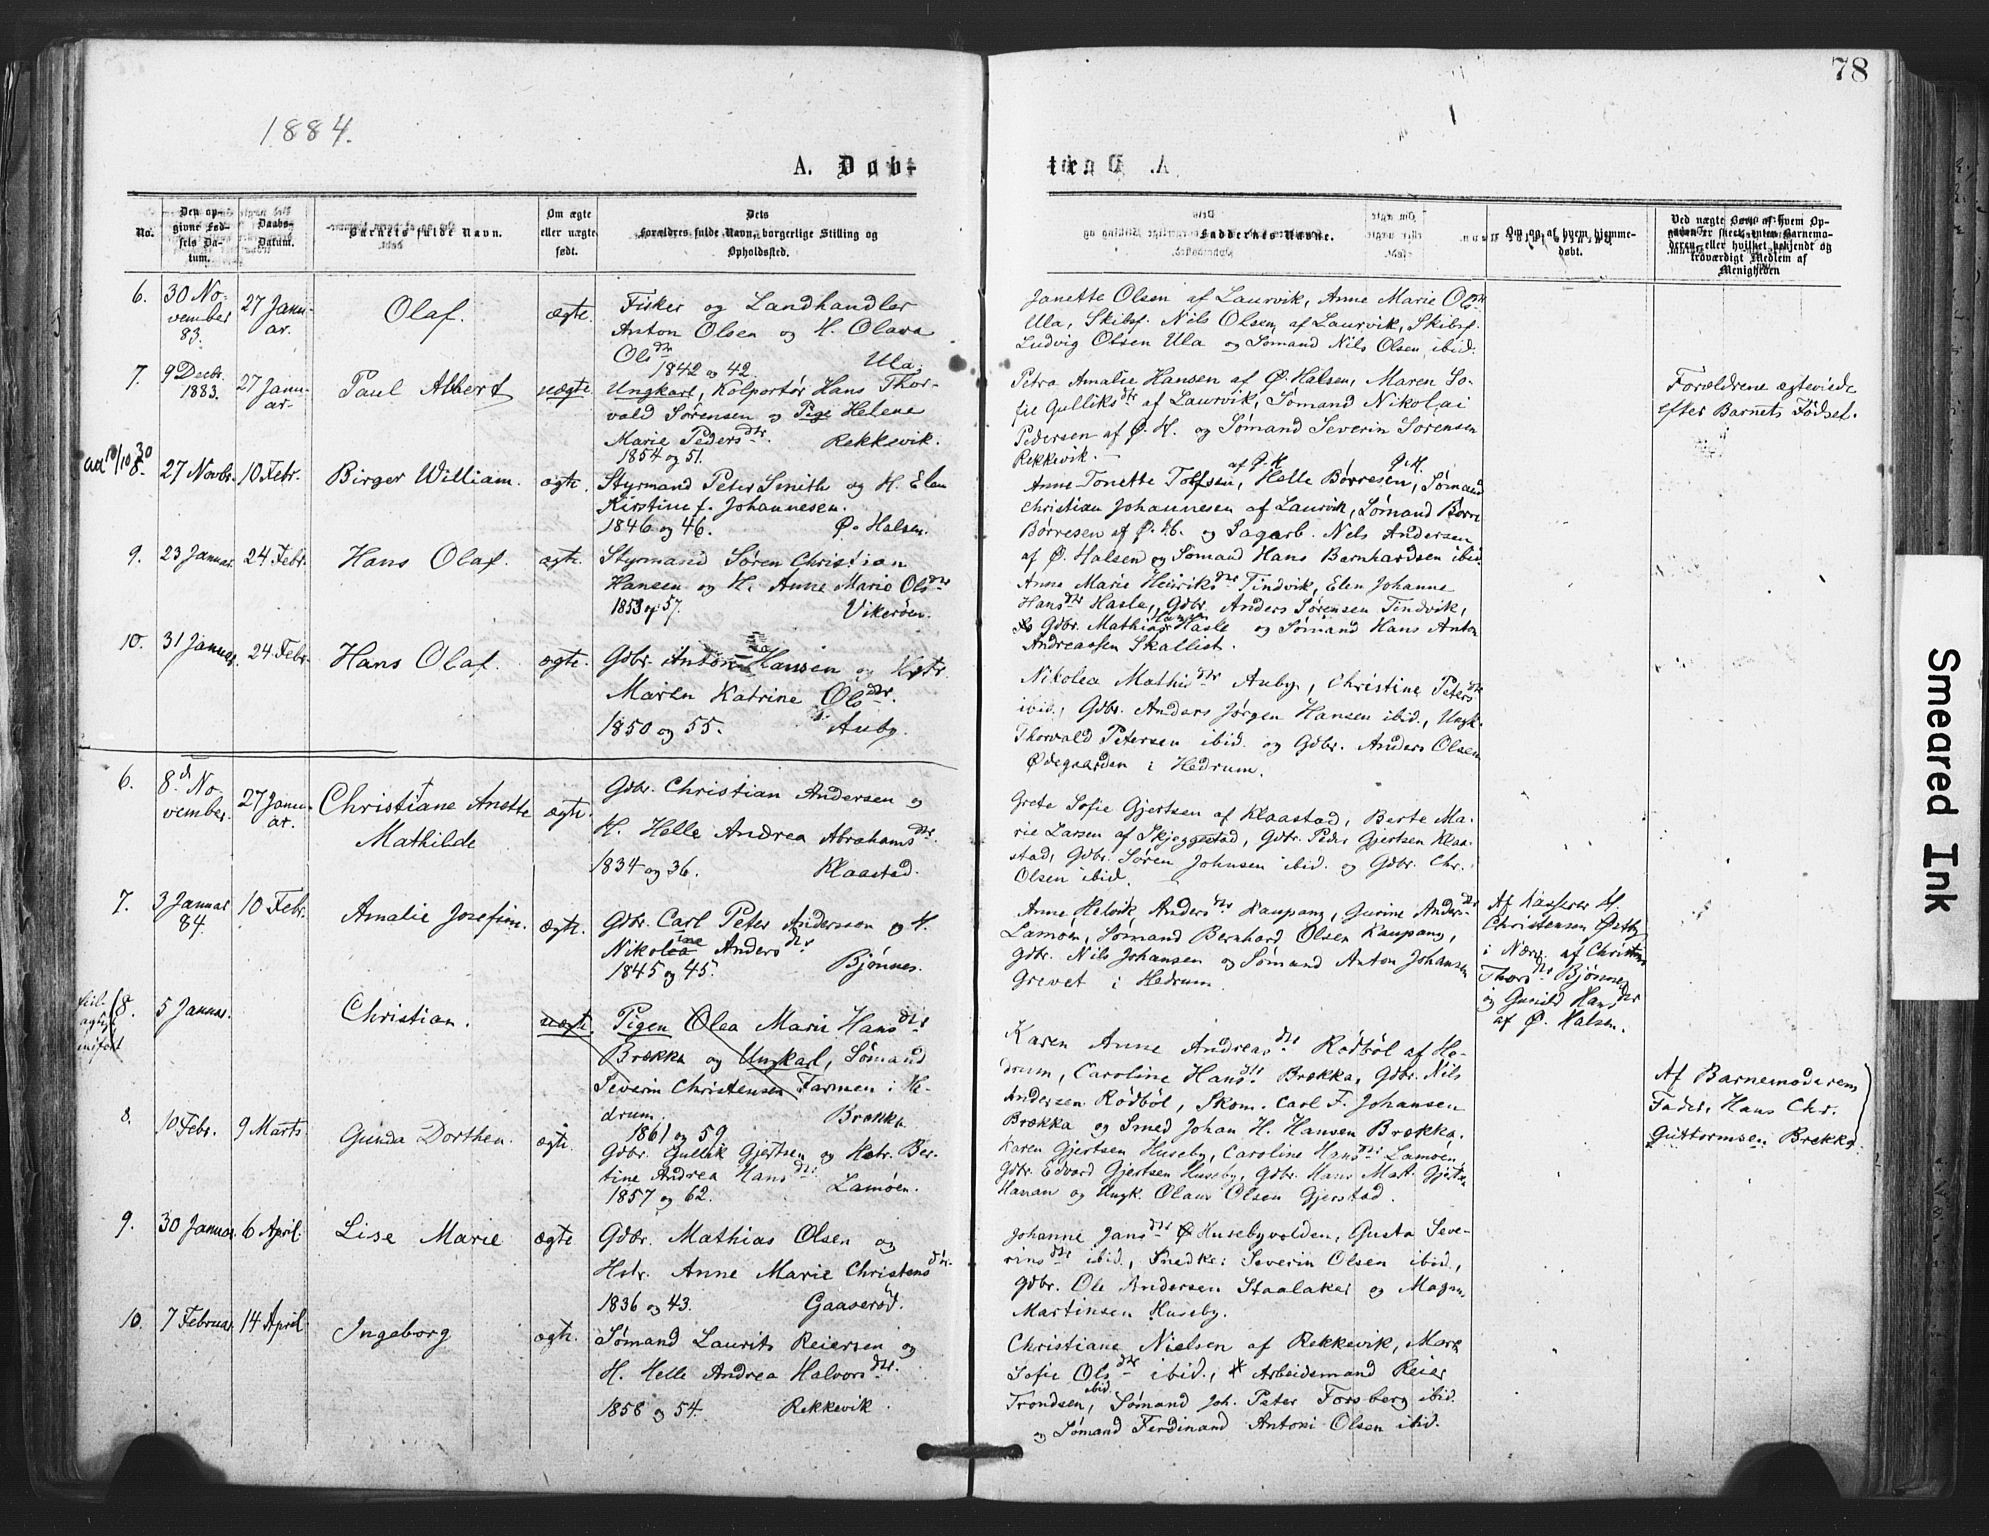 78
1884.
A. Døb-
No.
Den op-
givne Fød-
sels Da-
tum.
Daabs-
Datum.
Barnets fulde Navn.
Om ægte
eller uægte
født.
Dets
Forældres fulde Navn, borgerlige Stilling og
Opholdssted.
Faddernes Navne.
Om og af hvem hjemme-
døbt.
Menigheden
6.
30 No-
vember
83.
27 Janu-
ar.
Olaf.
ægte.
Fisker og Landhandler
Anton Olsen og H. Olava
Olsdtr
1842 og 42. Ula.
Janette Olsen af Laurvik, Anne Marie Olsdtr
Ula, Skibsf. Nils Olsen af Laurvik, Skibsf.
Ludvig Olsen Ula og Sømand Nils Olsen ibid.
7.
9 Decbr.
1883.
27 Janu-
ar.
Paul Albert
uægte
Ungkarl, Kolportør Hans Thor-
vald Sørensen og Pige Helene
Marie Pedersdtr. Rekkevik.
1854 og 51.
Petra Amalie Hansen af Ø. Halsen, Maren So-
fie Gulliksdtr af Laurvik, Sømand Nikolai
Pedersen af Ø. H. og Sømand Severin Sørensen
Rekkevik.
Forældrene ægteviede
efter Barnets Fødsel.
8.
27 Novbr.
10 Febr.
Birger William.
ægte.
Styrmand Peter Smith og H. Elen
Kirstine f. Johannesen.
1846 og 46. Ø. Halsen.
Anne Tonette Tolfsen, af Ø. H. Helle Børresen, Ø. H. Sømand
Christian Johannesen af Laurvik, Sømand Børre
Børresen af Ø. H. og Sagarb. Nels Andersen
af Ø. Halsen og Sømand Hans Bernhardsen ibid.
9.
23 Januar.
24 Febr.
Hans Olaf.
ægte.
Styrmand Søren Christian
Hansen og H. Anne Marie Olsdtr
1853 og 57. Vikerøen.
Anne Marie Henriksdtr Tindvik, Elen Johanne
Hansdtr Hasle, Gdbr. Anders Sørensen Tindvik,
Gdbr. Mathias Hansen Hasle og Sømand Hans Anton
Andreassen Skallist.
10.
31 Januar.
24 Febr.
Hans Olaf.
ægte.
Gdbr. Anton Hansen og Hstr.
Maren Katrine Olsdtr.
1850 og 55. Auby.
Nikolea Mathisdtr Auby, Christine Petersdtr
ibid., Gdbr. Anders Jørgen Hansen ibid., Ungk.
Thorvald Petersen ibid. og Gdbr. Anders Olsen
Ødegaarden i Hedrum.
6.
8d No-
vember.
27 Janu-
ar.
Christiane Anette
Mathilde
ægte.
Gdbr. Christian Andersen og
H. Helle Andrea Abrahamsdtr.
1834 og 36. Klaastad.
Grete Sofie Gjertsen af Klaastad, Berte Ma-
rie Larsen af Skjeggestad, Gdbr. Peder Gjertsen Klaa-
stad, Gdbr. Søren Johnsen ibid. og Gdbr. Chr.
Olsen ibid.
7.
3 Januar
84.
10 Febr.
Amalie Josefine.
ægte.
Gdbr. Carl Peter Anderssen og H.
Nikoline Andersdtr
1845 og 45. Bjønnes.
Anne Helvik Andersdtr Kaupang, Gurine Andersdtr
Lamøen, Sømand Bernhard Olsen Kaupang,
Gdbr. Nils Johansen og Sømand Anton Johansen
Grevet i Hedrum.
Af Kasserer H.
Christensen Østby
i Nærv. af Christine
Thorsdtr Bjønnes
og Gunild Hansdtr
af Ø. Halsen.
8.
5 Januar.
Christian.
uægte.
Pigen Olea Marie Hansdtr
Brekka og Ungkarl, Sømand
Severin Christensen Farmen i He-
drum. Brekka.
1861 og 59.
Karen Anne Andreasdtr Rødbøl af He-
drum, Caroline Hansdtr. Brekka, Gdbr. Nils
Andersen Rødbøl, Skom. Carl F. Johansen
Brekka og Smed Johan H. Hansen Brekka.
Af Barnemoderens
Fader, Hans Chr.
Guttormsen Brekka.
8.
10 Febr.
9 Marts
Gunda Dorthea.
ægte.
Gdbr. Gullik Gjertsen og Hstr. Ber-
tine Andrea Hansdtr.
1857 og 62. Lamøen.
Karen Gjertsen Huseby, Caroline Hansdtr Lamøen,
Gdbr. Edvard Gjertsen Huseby, Gdbr. Hans Mat. Gjertsen
Hanan og Ungk. Olaus Olsen Gjerstad.
9.
30 Januar.
6 April.
Lise Marie
ægte
Gdbr. Mathias Olsen og
Hstr. Anne Marie Christensdtr.
1836 og 43. Gaaserød.
Johanne Jansdtr Husebyvolden, Gusta Seve-
rinsdtr ibid., Snedker Severin Olsen ibid.,
Gdbr. Ole Andersen Staalaker og Magn.
Martinsen Huseby.
10.
7 Februar.
14 April
Ingeborg
ægte.
Sømand Laurits Reiersen og
H. Helle Andrea Halvorsdtr.
1858 og 54. Rekkevik.
Christiane Nielsen af Rekkevik, Mare
Sofie Olsdtr ibid., Arbeidsmand Reier
Trondsen, ibid. Sømand Joh. Peter Forsberg ibid.
og Sømand Ferdinand Antoni Olsen ibid.
Smeared Ink